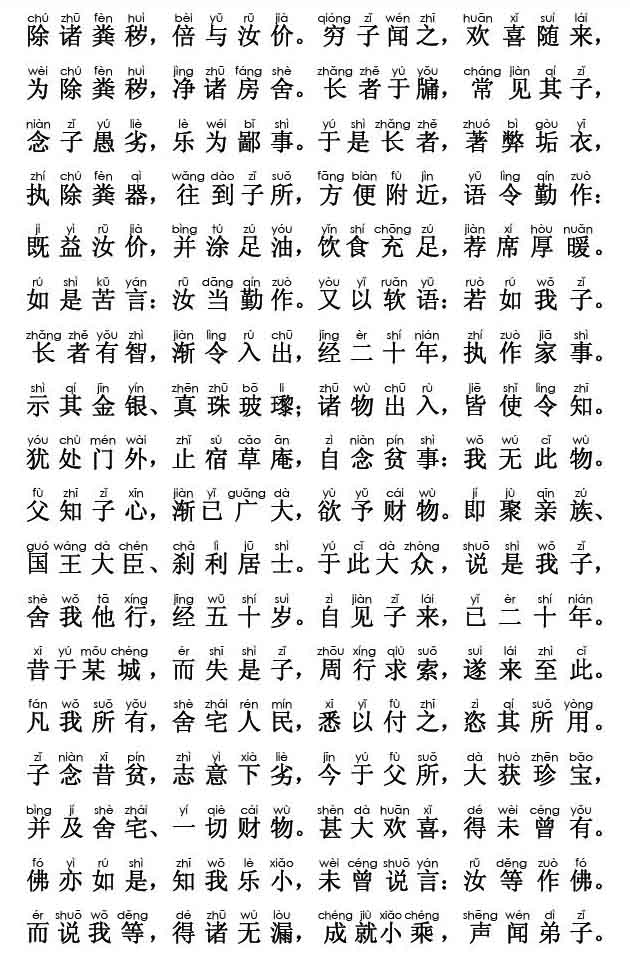 chú zhū fèn huì bèi yǔ rǔ jià qióng zǐ wén zhī huān xǐ suí lái
除诸粪秽，倍与汝价。穷子闻之，欢喜随来，
wèi chú fèn huì jìng zhū fáng shè zhǎng zhě yú yǒu cháng jiàn qí zǐ
为除粪秽，净诸房舍。长者于牖，常见其子，
niàn zǐ yú liè lè wéi bǐ shì yú shì zhǎng zhě zhuó bì gòu yī
念子愚劣，乐为鄙事。于是长者，著弊垢衣，
zhí chú fèn qì wǎng dào zǐ suǒ fāng biàn fù jìn yǔ lìng qín zuò
执除粪器，往到子所，方便附近，语令勤作：
jì yì rǔ jià bìng tú zú yóu yǐn shí chōng zú jiàn xí hòu nuǎn
既益汝价，并涂足油，饮食充足，荐席厚暖。
rú shì kǔ yán rǔ dāng qín zuò yòu yǐ ruǎn yǔ ruò rú wǒ zǐ
如是苦言：汝当勤作。又以软语：若如我子。
zhǎng zhě yǒu zhì jiàn lìng rù chū jīng èr shí nián zhí zuò jiā shì
长者有智，渐令入出，经二十年，执作家事。
shì qí jīn yín zhēn zhū bō li zhū wù chū rù jiē shǐ lìng zhī
示其金银、真珠玻瓈；诸物出入，皆使令知。
yóu chù mén wài zhǐ sù cǎo ān zì niàn pín shì wǒ wú cǐ wù
犹处门外，止宿草庵，自念贫事：我无此物。
fù zhī zǐ xīn jiàn yǐ guǎng dà yù yǔ cái wù jí jù qīn zú
父知子心，渐已广大，欲予财物。即聚亲族、
guó wáng dà chén chà lì jū shì yú cǐ dà zhòng shuō shì wǒ zǐ
国王大臣、刹利居士。于此大众，说是我子，
shè wǒ tā xíng jīng wǔ shí suì zì jiàn zǐ lái yǐ èr shí nián
舍我他行，经五十岁。自见子来，已二十年。
xī yú mǒu chéng ér shī shì zǐ zhōu xíng qiú suǒ suì lái zhì cǐ
昔于某城，而失是子，周行求索，遂来至此。
fán wǒ suǒ yǒu shè zhái rén mín xī yǐ fù zhī zì qí suǒ yòng
凡我所有，舍宅人民，悉以付之，恣其所用。
zǐ niàn xī pín zhì yì xià liè jīn yú fù suǒ dà huò zhēn bǎo
子念昔贫，志意下劣，今于父所，大获珍宝，
bìng jí shè zhái yí qiè cái wù shèn dà huān xǐ dé wèi céng yǒu
并及舍宅、一切财物。甚大欢喜，得未曾有。
fó yì rú shì zhī wǒ lè xiǎo wèi céng shuō yán rǔ děng zuò fó
佛亦如是，知我乐小，未曾说言：汝等作佛。
ér shuō wǒ děng dé zhū wú lòu chéng jiù xiǎo chéng shēng wén dì zǐ
而说我等，得诸无漏，成就小乘，声闻弟子。